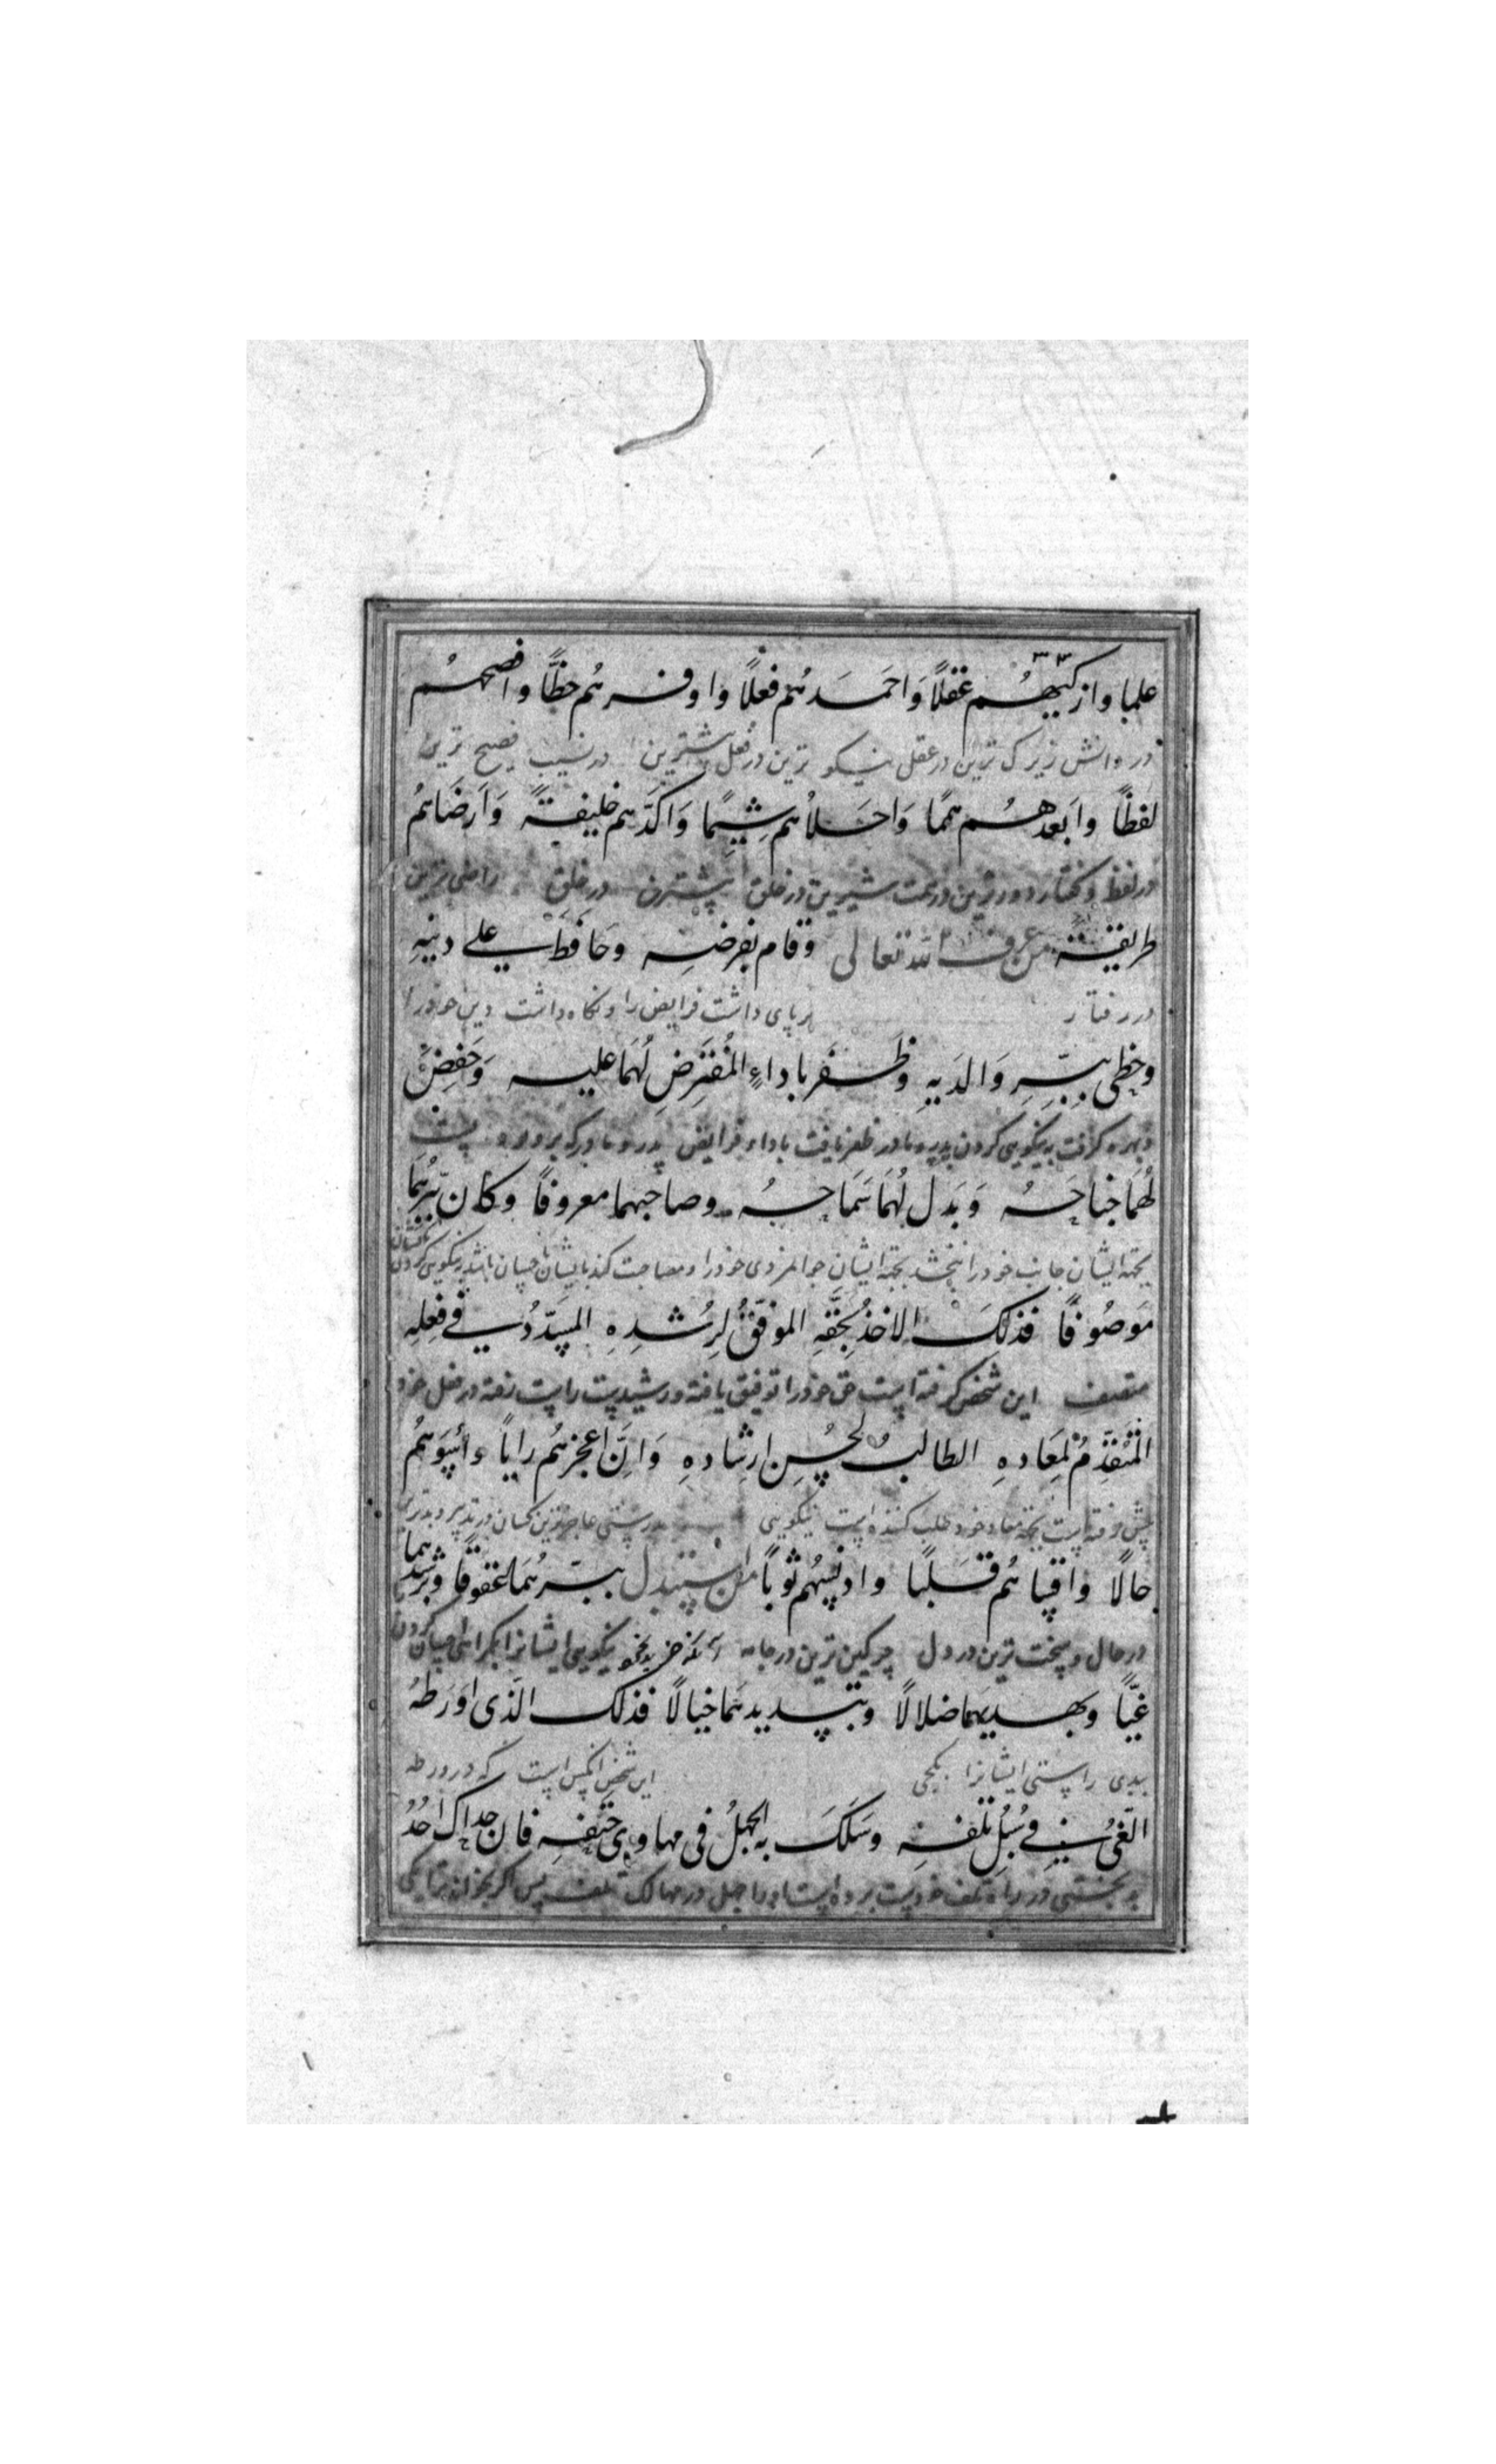 علما وازكيهم عقلًا وَاحَمَدَهُم فعلًا واوفرهُم حظًّا وافصحهُم
در دانش زیرک ترین در عقل نیکو ترین در فعل بیشترین در نصیب فصیح ترین
لفظًا وابَعدهُم هممًا وَاحَلاهُم شِيَمًا وَاكدَّهم خليقةً وَاَرضَاهُم
در لفظ و گفتار دورترین در همت شیرین در خلق بیشترین در خلق راضی ترین
طريقة من عرف الله تعالى وقام بفرضه وحَافظ على دينهِ
در رفتار بر پای داشت فرایض را و نگاه داشت دین خود را
وحظى ببِرِّهِ وَالدَيهِ وظَفَر باداءِ المُفتَرَضِ لَهُمَا عليه وَخفِضَ
و بهره گرفت به نیکویی کردن پدر و مادر ظفر یافت باداء فرایض پدر و مادر که بر او
لهُمَا جناحَهُ وَبَذل لَهُمَا سَمَاحهُ وصاحبهما معروفًا وكان ببرّهُمَا
بجهة ایشان جانب خود را ببخشد بجهة ایشان جوانمردی خود را و مصاحبت کند با ایشان
مَوصُوفًا فذلكَ الاخذُ بحَقّهِ الموفّقُ لِرُشدِهِ المسَدّدُ في فعِلهِ
متصف این شخص گرفته است حق خود را توفیق یافته در رشد است راست رفته در فعل خود
المُتقَدِّمُ لمِعَادهِ الطالبُ لحُسِن ارِشادهِ وَانَّ اعجزهُم رايًا واَسوَءهُم
پیش رفته است بجهة معاد خود طلب کننده است نیکویی بدرستی عاجزترین کسان در تدبیر و بدترین
حالًا واقساهُم قَلبًا وادنسهُم ثوبًا من استبدل ببرّهُمَا عُقوقًا وبرشدهما
در حال و سخت ترین در دل چرکین ترین در جامه آنکه نیکویی ایشانرا
غيًّا وبهديهما ضلالًا وبتسديدهما خبالًا فذلك الّذى اَورَطهُ
بدی راستی ایشانرا بکجی این شخص آنکس است که در ورطه
الغىُّ في سُبُلِ تلفه وسَلَكَ به الجهلُ فى مهاوى حَتفِهِ فان جداك احَدٌ
بدبختی در راه تلف خود است برده است او را جهل در مهالک تلف پس اگر